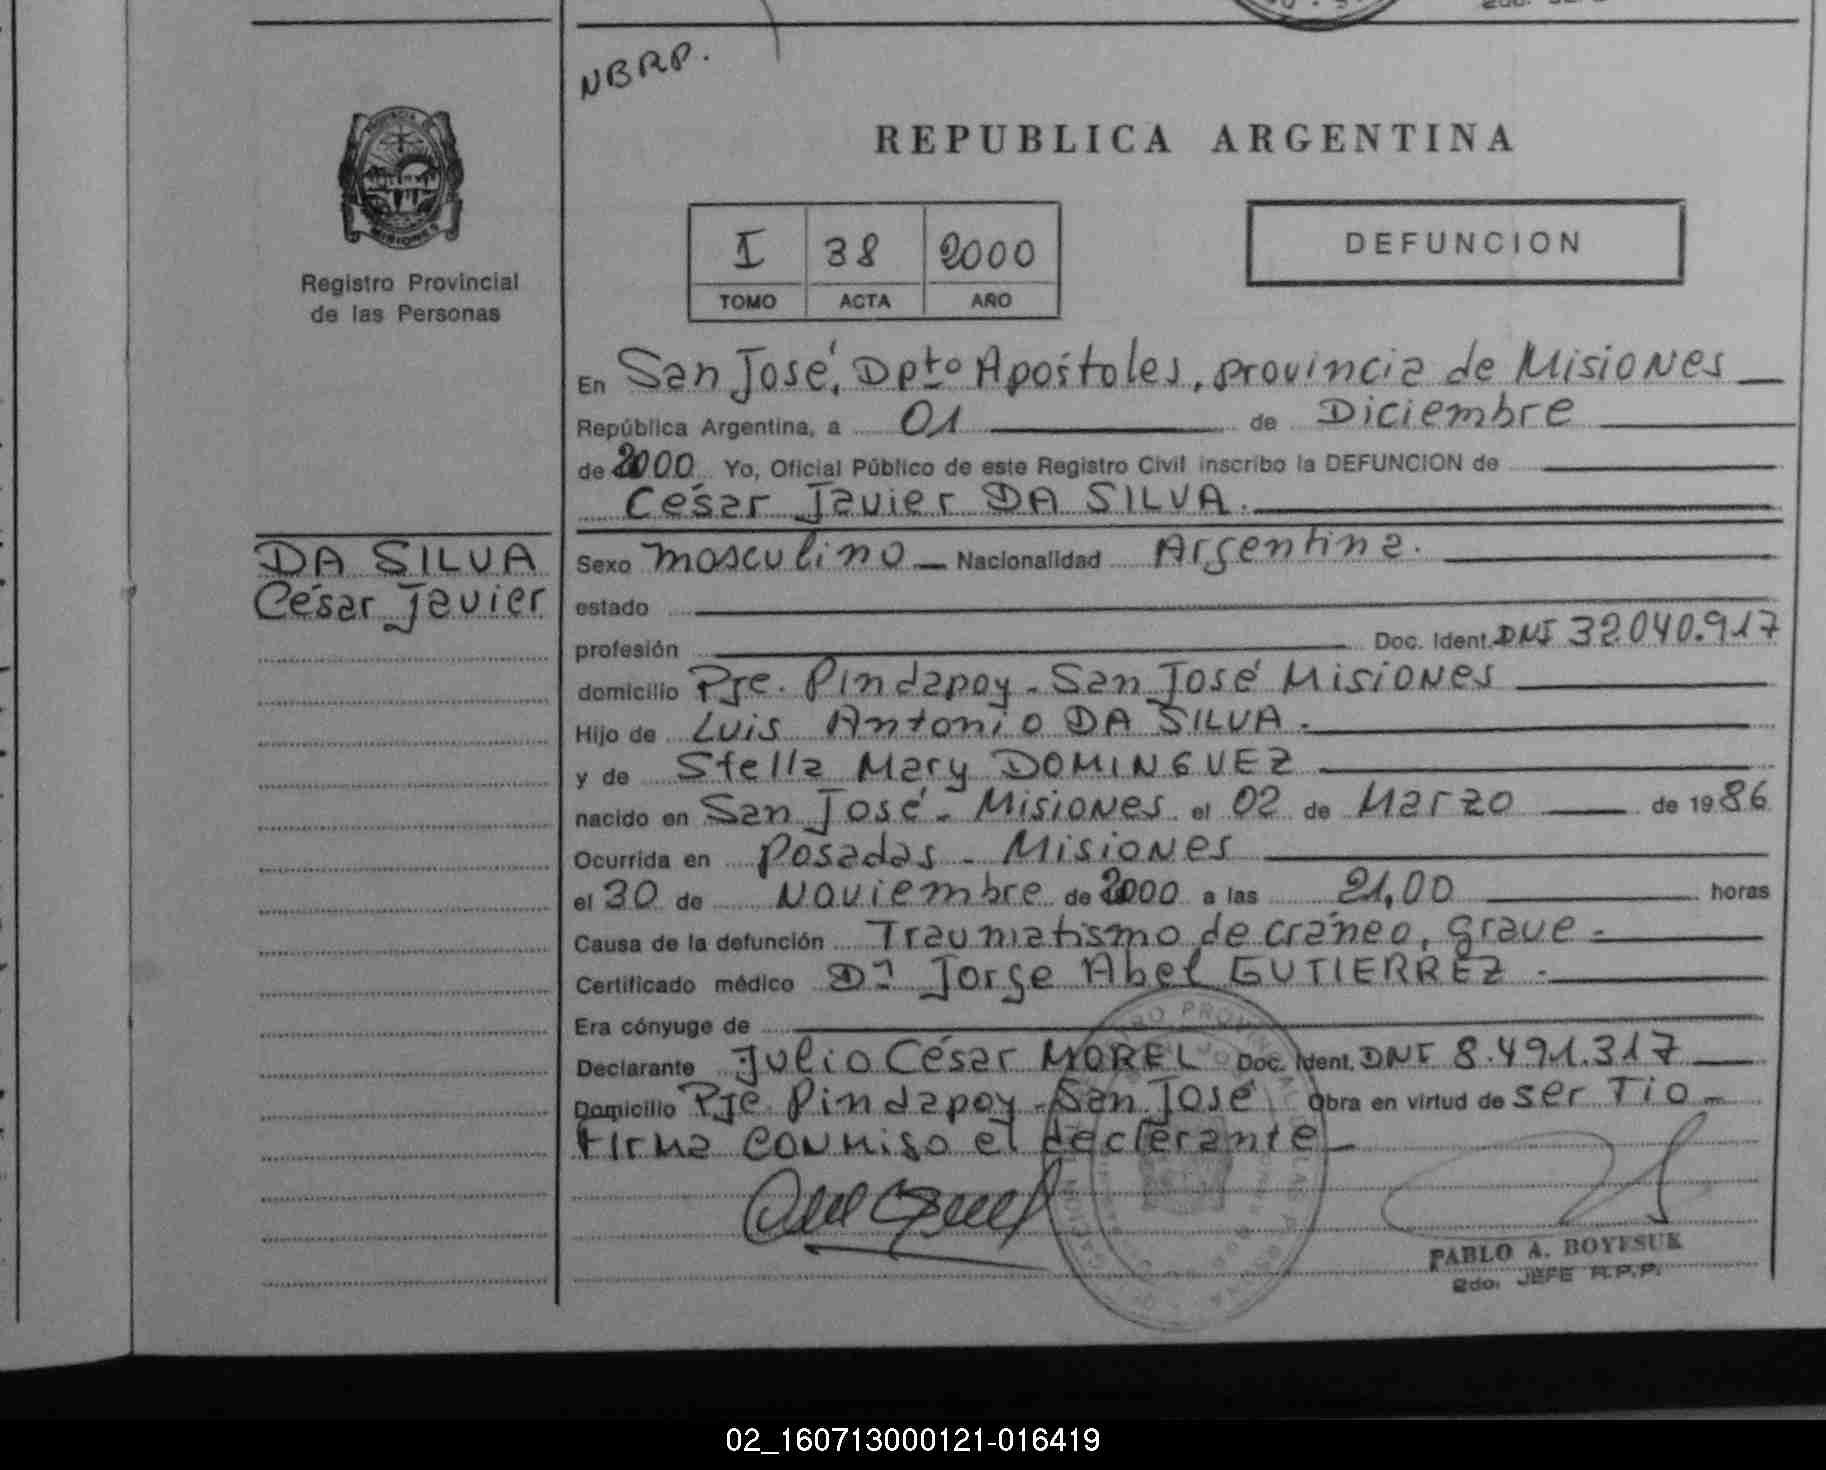 NBRP.
REPUBLICA ARGENTINA
PROVINCIA DE
MISIONES
Registro Provincial
de las Personas
I 38 2000
TOMO ACTA AÑO
DEFUNCION
En San José, Dpto Apóstoles, provincia de Misiones
República Argentina, a 01 de Diciembre
de 2000 Yo, Oficial Público de este Registro Civil inscribo la DEFUNCION de
César Javier DA SILVA.
DA SILVA
César Javier
Sexo masculino Nacionalidad Argentina.
estado
profesión Doc. Ident. DNI 32.040.917
domicilio Pje. Pindapoy - San José Misiones
Hijo de Luis Antonio DA SILVA.
y de Stella Mary DOMINGUEZ
nacido en San José - Misiones el 02 de Marzo de 1986
Ocurrida en Posadas - Misiones
el 30 de Noviembre de 2000 a las 21,00 horas
Causa de la defunción Traumatismo de cráneo, grave -
Certificado médico Dr Jorge Abel GUTIERREZ -
Era cónyuge de
Declarante Julio César MOREL Doc. Ident. DNI 8.491.317
Domicilio Pje Pindapoy - San José Obra en virtud de ser Tio -
Firma conmigo el declarante
PABLO A. BOYESUK
2do. JEFE R.P.P.
02_160713000121-016419